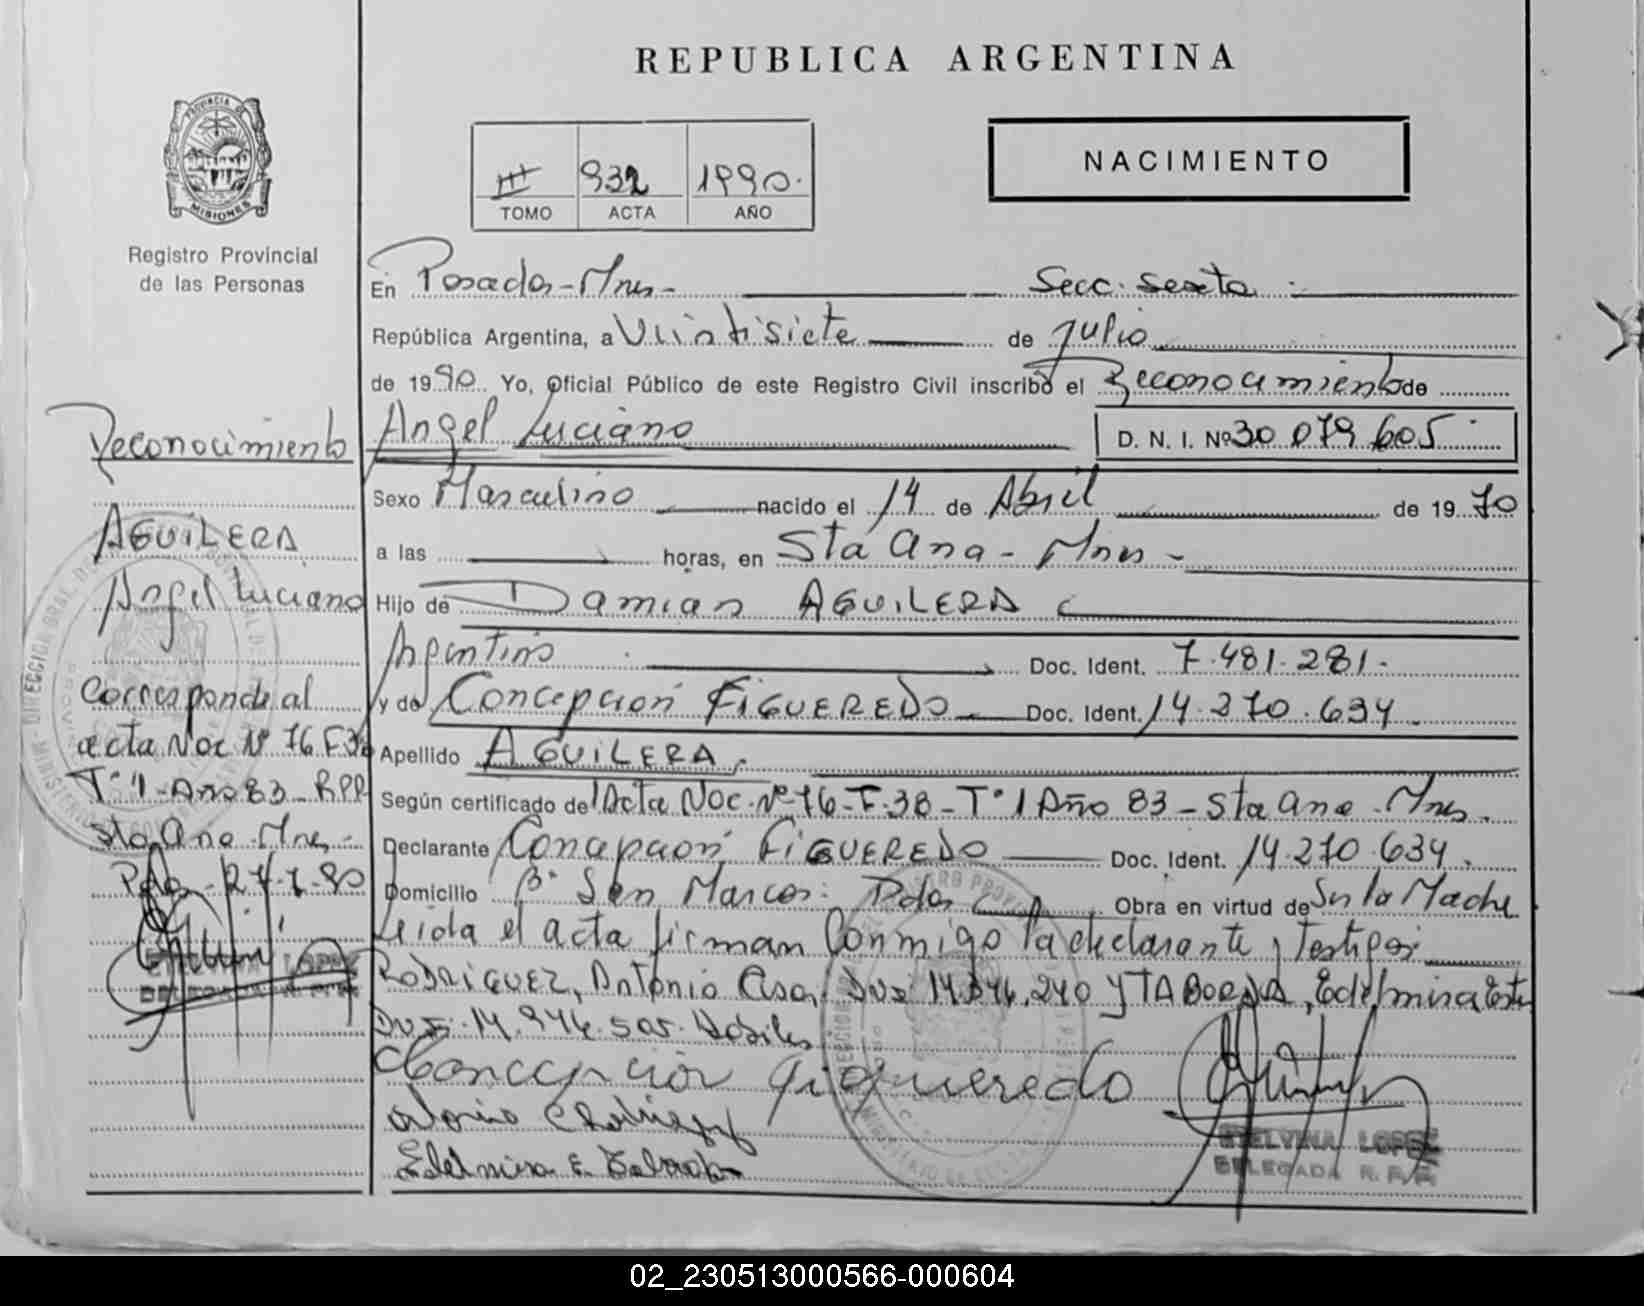 REPUBLICA ARGENTINA
PROVINCIA DE
MISIONES
Registro Provincial
de las Personas
III 932 1990.
TOMO ACTA AÑO
NACIMIENTO
En Posadas - Mnes - Secc. Sexta
República Argentina, a Veintisiete de Julio
de 1990. Yo, Oficial Público de este Registro Civil inscribo el Reconocimiento de
Angel Luciano D. N. I. Nº 30 079 605
Sexo Masculino nacido el 14 de Abril de 1970
a las horas, en Sta Ana - Mnes -
Hijo de Damian AGUILERA
Argentino Doc. Ident. 7.481.281.
y de Concepción FIGUEREDO Doc. Ident. 14.270.634.
Apellido AGUILERA.
Según certificado de Acta Nac. Nº 76 - F. 38 - Tº 1 Año 83 - Sta Ana - Mnes.
Declarante Concepción FIGUEREDO Doc. Ident. 14.270.634.
Domicilio Bº San Marcos: Pdas Obra en virtud de Ser la Madre
Leida el acta firman conmigo la declarante y Testigos
RODRIGUEZ, Antonio DNI y TABORDA, Edelmira Ester
DNI. 14.946.505. Hábiles
Concepcion figueredo
Edelmira E. Taborda
ETELVINA LOPEZ
DELEGADA R. P. P.
Reconocimiento
AGUILERA
Angel Luciano
Corresponde al
acta Nac Nº 76 F 38
Tº 1 - Año 83 - RPP
Sta Ana - Mnes -
Pdas - 27-7-90
ETELVINA LOPEZ
DELEGADA R. P. P.
02_230513000566-000604